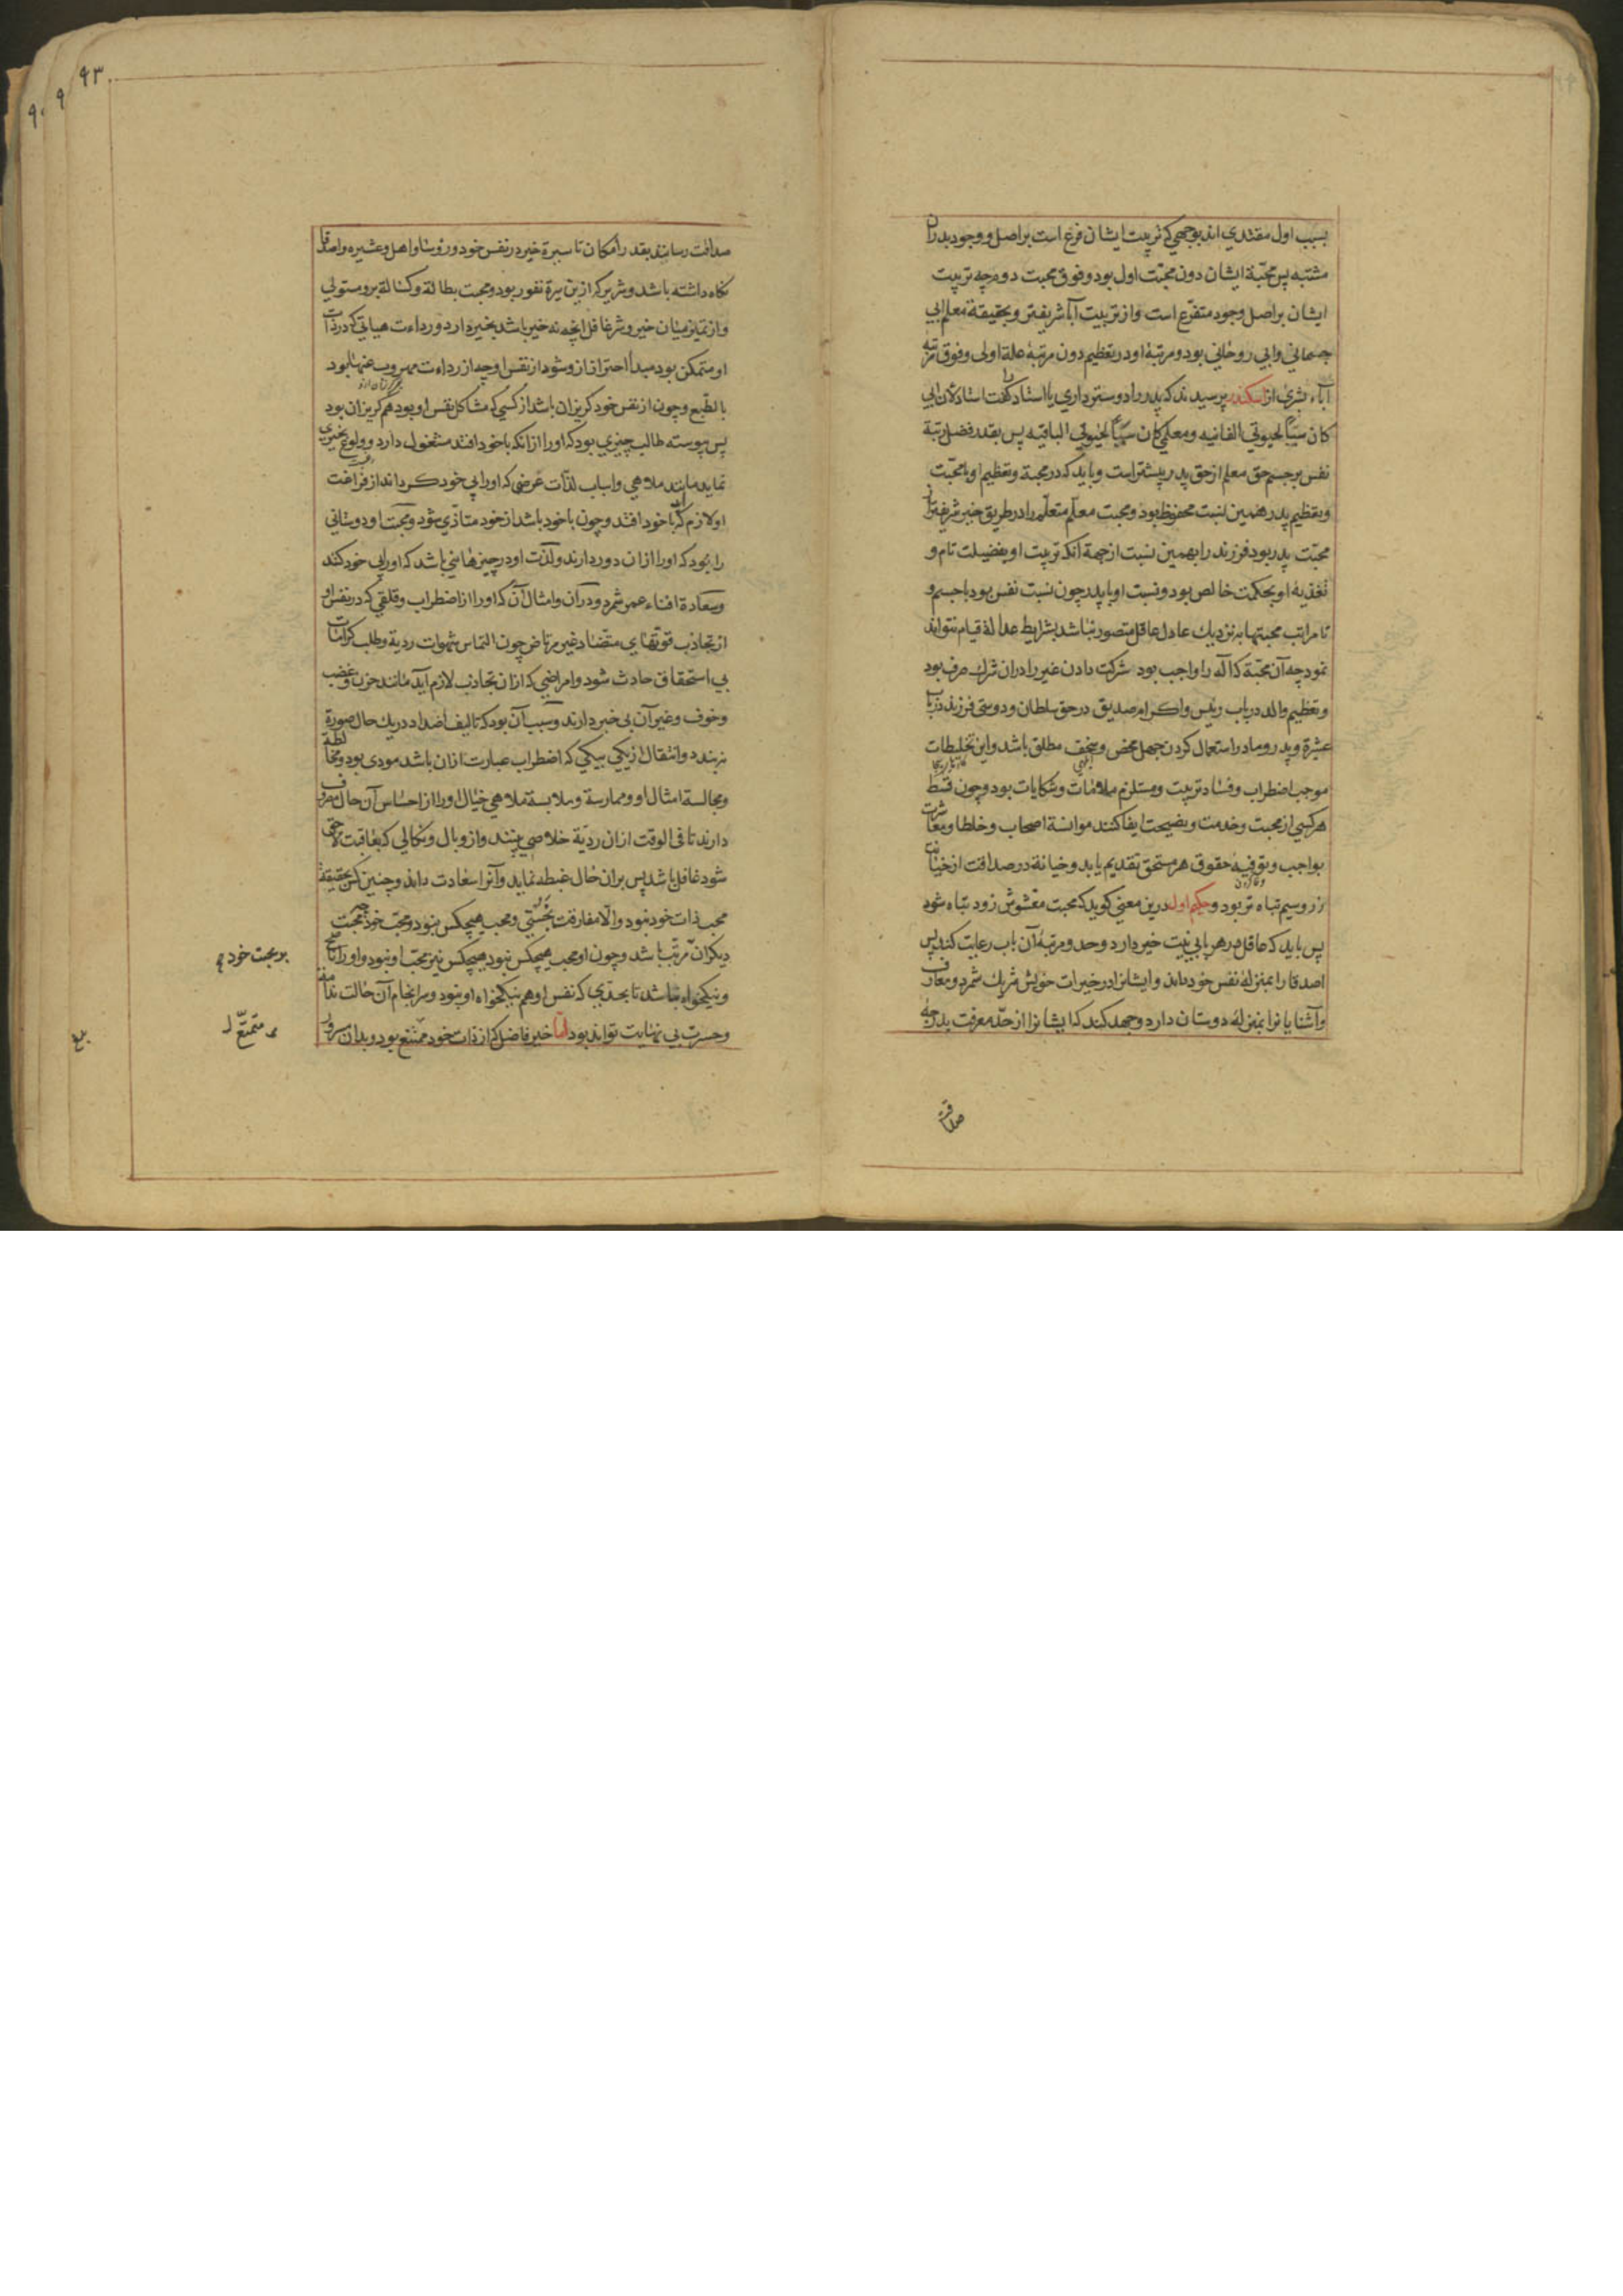 بسبب اول مقتدي اند بوجهي كه تربيت ايشان فرع است بر اصل و وجود بدران
مشتبه پس محبة ايشان دون محبّت اول بود و فوق محبت دوم چه تربيت
ايشان بر اصل وجود متفرع است و از تربيت آبا شريفتر و بحقيقة معلم ابي
جسماني و ابي روحاني بود و مرتبهٔ او در تعظيم دون مرتبهٔ علة اولى و فوق مرتبه
آباء بشري از اسكندر پرسيدند كه پدر را دوستتر داري يا استاد را گفت استاد لان ابي
كان سبباً لحيوتي الفانيه و معلمي كان سبباً لحيوتي الباقيه پس بقدر فضل رتبة
نفس بر جسم حق معلم از حق پدر بيشتر است و بايد كه در محبة و تعظيم او با محبّت
و تعظيم پدر همين نسبت محفوظ بود و محبت معلّم متعلّم را در طريق خير شريفتر از
محبّت پدر بود فرزند را بهمين نسبت از جهة انكه تربيت او بفضيلت تام و
تغذيهٔ او بحكمت خالص بود و نسبت او با پدر چون نسبت نفس بود با جسم و
تا مراتب محبتها به نزديك عادل عاقل متصور نباشد بشرايط عدالة قيام نتواند
نمود چه آن محبّة كه اله را واجب بود شركت دادن غير را دران شرك صرف بود
و تعظيم والد در باب رئيس و اكرام صديق در حق سلطان و دوستي فرزند در باب
عشرة و پدر و مادر استعمال كردن جهل محض و سخف مطلق باشد و اين تخليطات
موجب اضطراب و فساد تربيت و مستلزم ملامات و شكايات بود و چون قسط
هر كسي از محبت و خدمت و نصيحت ايفا كنند موانسة اصحاب و خلطا و معاشرت
بواجب و توفيهٔ حقوق هر مستحق تقديم يابد و خيانة در صداقت از خيانت
زر و سيم تباه تر بود و حكيم اول درين معني گويد كه محبت مغشوش زود تباه شود
پس بايد كه عاقل در هر بابي نيت خير دارد و حد و مرتبهٔ آن باب رعايت كند پس
اصدقا را بمنزلهٔ نفس خود داند و ايشانرا در خيرات خويش شريك شمرد و معارف
و آشنايانرا بمنزلهٔ دوستان دارد و جهد كند كه ايشانرا از حدّ معرفت بدرجهٔ
صداقت
٩٣
صداقت رساند بقدر امكان تا سيرة خير در نفس خود و رؤسا و اهل و عشيره و اصدقا
نگاه داشته باشد و شرير كه ازين سيرة نفور بود و محبت بطالة و كسالة برو مستولي
و از تميز ميان خير و شر غافل انچه نه خير باشد بخير دارد و رداءت هياتي كه در ذات
او متمكن بود مبدأ احتراز از و شود از نفس او چه از رداءت مهروب عنها بود
بالطّبع و چون از نفس خود گريزان باشد از كسي كه مشاكل نفس او بود هم گريزان بود
پس پيوسته طالب چيزي بود كه او را از انكه با خود افتد مشغول دارد و ولوع بچيزي
نمايد مانند ملاهي و اسباب لذّات عرضي كه او را بي خود كرداند از فراغت
او لازم آيد كه با خود افتد و چون با خود باشد از خود متأذّي شود و محبّت او دوستاني
را بود كه او را ازان دور دارند و لذّت او در چيزهائي باشد كه او را بي خود كنند
و سعادة افناء عمر شمرد در آن و امثال آن كه او را از اضطراب و قلقي كه در نفس او
از تجاذب قوّتهاي متضاد غير مرتاض چون التماس شهوات رديّة و طلب كرامات
بي استحقاق حادث شود و امراضي كه ازان تجاذب لازم آيد مانند حزن و غضب
و خوف و غير آن بي خبر دارند و سبب آن بود كه تاليف اضداد در يك حال صورة
نبندد و انتقال از يكي بيكي كه اضطراب عبارت ازان باشد مودي بود و مخالطة
و مجالسة امثال او و ممارسة و ملابسة ملاهي خيال او را از احساس آن حال مصروف
دارند تا في الوقت ازان رديّة خلاصي بيند و از وبال و نكالي كه بعاقبت لاحق
شود غافل باشد پس بران حال غبطه نمايد و آنرا سعادت داند و چنين كس بحقيقة
محب ذات خود نبود و الّا مفارقت نجستي و محب هيچكس نبود و محبّ خود چه محبّت
ديگران مرتّب باشد و چون او محب هيچكس نبود هيچكس نيز محبّ او نبود و او را ناصح
و نيكخواه نباشد تا بحدّي كه نفس او هم نيكخواه او نبود و سرانجام آن حالت ندامة
و حسرت بي نهايت تواند بود امّا خير فاضل كه از ذات خود متمتع بود و بدان مسرور
بر محبت خود
متمتّع